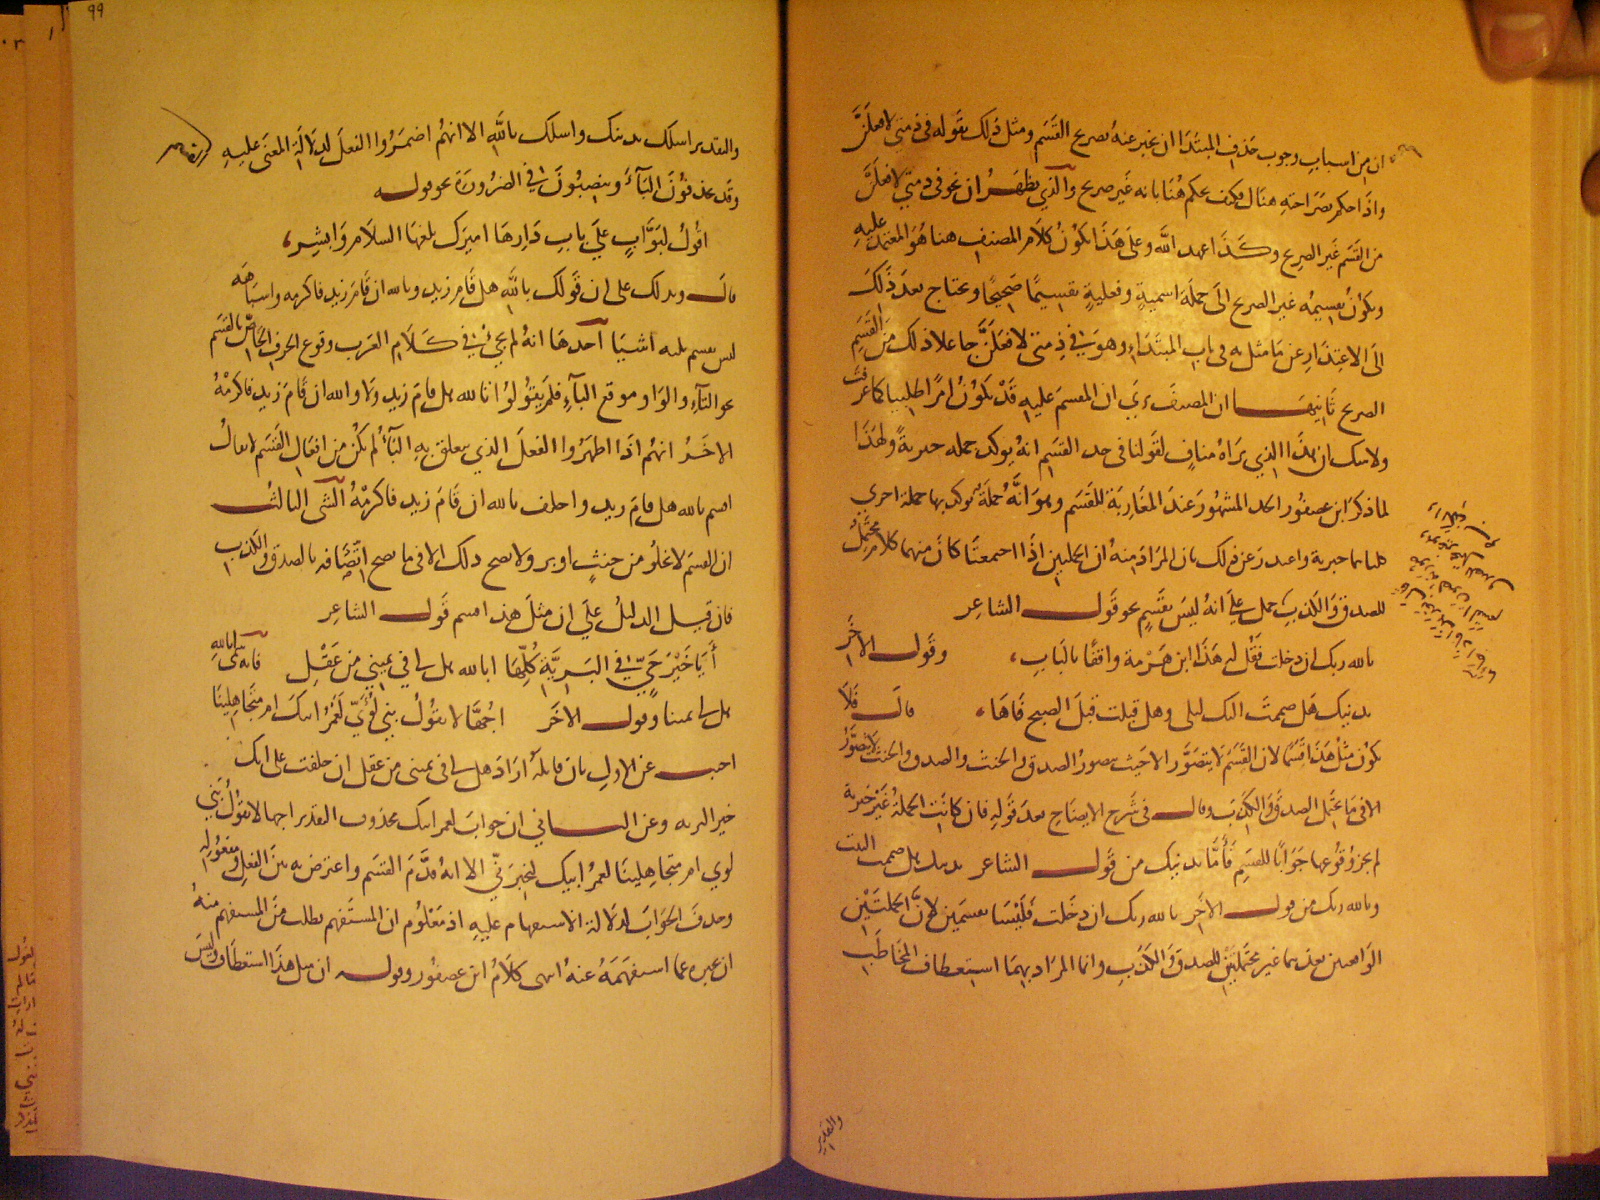 ان من اسباب وجوب حذف المبتدا ان يخبر عنه بصريح القسم ومثل ذلك بقوله في ذمتي لافعلن
واذا حكم بصراحته هناك فكيف يحكم هنا بانه غير صريح والذي يظهر ان نحو في ذمتي لافعلن
من القسم غير الصريح وكذا اعهد الله وعلى هذا يكون كلام المصنف هنا هو المعتمد عليه
ويكون تقسيمه غير الصريح الى جملة اسمية وفعلية تقسيما صحيحا ويحتاج بعد ذلك
الى الاعتذار عن ما مثل به في باب المبتداء وهو في ذمتي لافعلن جاعلا ذلك من القسم
الصريح ثانيها ان المصنف يرى ان المقسم عليه قد يكون امرا طلبيا كما عرفت
ولا شك ان هذا الذي يراه مناف لقولنا في حد القسم انه يوكد جملة خبرية ولهذا
لما ذكر ابن عصفور الحد المشهور عند المغاربة للقسم وهو انه جملة يوكد بها جملة اخرى
كلتاهما خبرية واعتذر عن ذلك بان المراد منه ان الجملتين اذا اجتمعتا كان منهما كلام محتمل
للصدق والكذب حمل على انه ليس بقسم نحو قول الشاعر
بالله ربك ان دخلت فقل له هذا ابن هرمة واقفا بالباب ، وقول الاخر
بدينك هل ضممت اليك ليلى وهل قبلت قبل الصبح فاها ، قال فلا
يكون مثل هذا قسما لان القسم لا يتصور الا حيث يتصور الصدق والحنث والصدق والحنث لا يتصور
الا في ما يحتمل الصدق والكذب وقال في شرح الايضاح بعد قوله فان كانت الجملة غير خبرية
لم يجز وقوعها جوابا للقسم فاما بدينك من قول الشاعر بدينك هل ضممت البيت
وبالله ربك من قول الاخر بالله ربك ان دخلت فليسا بقسمين لان الجملتين
الواقعتين بعدهما غير محتملتين للصدق والكذب وانما المراد بهما استعطاف المخاطب
والتقدير
99
والتقدير اسلك بدينك واسلك بالله الا انهم اضمروا الفعل لدلالة المعنى عليه
وقد يحذفون الباء وينصبون في الضرورة نحو قوله
اقول لبواب على باب دارها اميرك بلغها السلام وابشر ،
قال ويدلك على ان قولك بالله هل قام زيد وبالله ان قام زيد فاكرمه واشباهه
ليس بقسم ثلثه اشيا احدها انه لم يجئ في كلام العرب وقوع الحرف الخاص بالقسم
نحو التاء والواو موقع الباء فلم يقولوا تالله هل قام زيد ولا والله ان قام زيد فاكرمه
الاخر انهم اذا اظهروا الفعل الذي يتعلق به الباء لم يكن من افعال القسم لا يقال
اقسم بالله هل قام زيد واحلف بالله ان قام زيد فاكرمه الشي الثالث
ان القسم لا يخلو من حنث او بر ولا يصح ذلك الا في ما يصح اتصافه بالصدق والكذب
فان قيل الدليل على ان مثل هذا قسم قول الشاعر
أيا خير حي في البرية كلها ابالله هل لي في يميني من عقل فانه قال ابالله
هل لي يمينا وقول الاخر اجهالا تقول بني لؤي لعمر ابيك ام متجاهلينا
اجيب عن الاول بان قايله اراد هل لي في يميني من عقل ان حلفت على انك
خير البرية وعن الثاني ان جواب لعمر ابيك محذوف التقدير اجهالا تقول بني
لوي ام متجاهلينا لعمر ابيك لتخبرني الا انه قدم القسم واعترض به بين الفعل ومفعوله
وحذف الجواب لدلالة الاستفهام عليه اذ معلوم ان المستفهم يطلب من المستفهم منه
ان يخبره عما استفهمه عنه انتهى كلام ابن عصفور وقوله ان مثل هذا استعطاف وليس